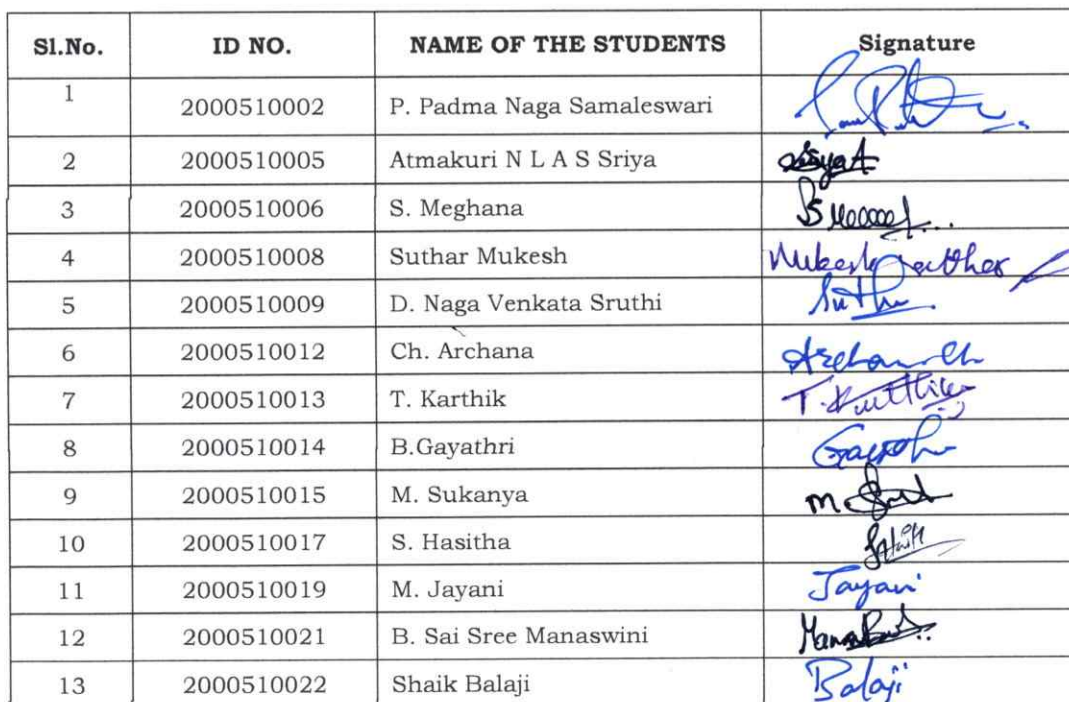 Sl.No. ID NO. NAME OF THE STUDENTS Signature
1 2000510002 P. Padma Naga Samaleswari
2 2000510005 Atmakuri N L A S Sriya
3 2000510006 S. Meghana
4 2000510008 Suthar Mukesh Mukesh Suthar
5 2000510009 D. Naga Venkata Sruthi
6 2000510012 Ch. Archana Archana Ch
7 2000510013 T. Karthik T. Karthik
8 2000510014 B.Gayathri
9 2000510015 M. Sukanya
10 2000510017 S. Hasitha
11 2000510019 M. Jayani Jayani
12 2000510021 B. Sai Sree Manaswini
13 2000510022 Shaik Balaji Balaji